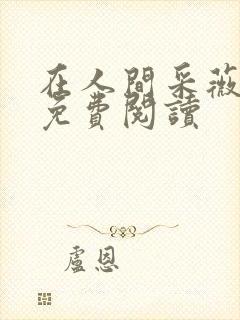 在人間采薇
免費閱讀
盧恩